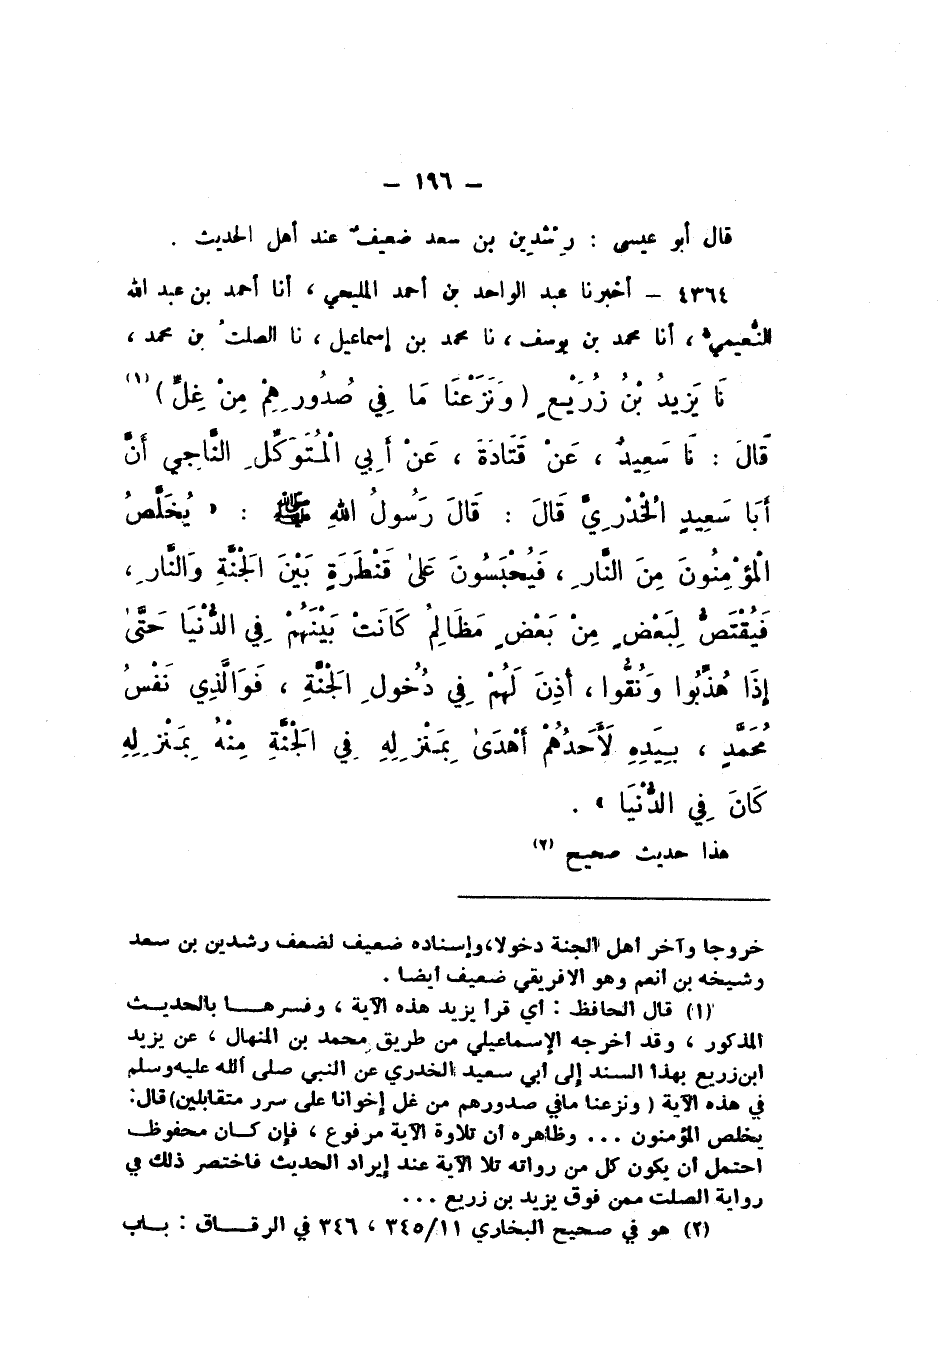 — ١٩٦ —
قال أبو عيسى : رِشْدِين بن سعد ضعيفٌ عند أهل الحديث .
٤٣٦٤ – أخبرنا عبد الواحد بن أحمد المليحي ، أنا أحمد بن عبد الله
النُّعيميُّ ، أنا محمد بن يوسف ، نا محمد بن إسماعيل ، نا الصلتُ بن محمد ،
نَا يَزِيدُ بْنُ زُرَيْعٍ ( وَنَزَعْنَا مَا فِي صُدُورِهِمْ مِنْ غِلٍّ ) (١)
قَالَ : نَا سَعِيدٌ ، عَنْ قَتَادَةَ ، عَنْ أَبِي الْمُتَوَكِّلِ النَّاجِي أَنَّ
أَبَا سَعِيدٍ الْخُدْرِيَّ قَالَ : قَالَ رَسُولُ اللهِ ﷺ : « يُخَلَّصُ
الْمُؤْمِنُونَ مِنَ النَّارِ ، فَيُحْبَسُونَ عَلَىٰ قَنْطَرَةٍ بَيْنَ الْجَنَّةِ وَالنَّارِ ،
فَيُقْتَصُّ لِبَعْضٍ مِنْ بَعْضٍ مَظَالِمُ كَانَتْ بَيْنَهُمْ فِي الدُّنْيَا حَتَّىٰ
إِذَا هُذِّبُوا وَنُقُّوا ، أُذِنَ لَهُمْ فِي دُخُولِ الْجَنَّةِ ، فَوَالَّذِي نَفْسُ
مُحَمَّدٍ ، بِيَدِهِ لَأَحَدُهُمْ أَهْدَىٰ بِمَنْزِلِهِ فِي الْجَنَّةِ مِنْهُ بِمَنْزِلِهِ
كَانَ فِي الدُّنْيَا » .
هذا حديث صحيح (٢)
خروجا وآخر أهل الجنة دخولا،وإسناده ضعيف لضعف رشدين بن سعد
وشيخه بن أنعم وهو الافريقي ضعيف أيضا .
(١) قال الحافظ : أي قرأ يزيد هذه الآية ، وفسرهـــا بالحديث
المذكور ، وقد أخرجه الإسماعيلي من طريق محمد بن المنهال ، عن يزيد
ابن زريع بهذا السند إلى أبي سعيد الخدري عن النبي صلى الله عليه وسلم
في هذه الآية ( ونزعنا مافي صدورهم من غل إخوانا على سرر متقابلين)قال:
يخلص المؤمنون ... وظاهره أن تلاوة الآية مرفوع ، فإن كان محفوظا
احتمل أن يكون كل من رواته تلا الآية عند إيراد الحديث فاختصر ذلك في
رواية الصلت ممن فوق يزيد بن زريع ...
(٢) هو في صحيح البخاري ٣٤٥/١١ ، ٣٤٦ في الرقــاق : بــاب